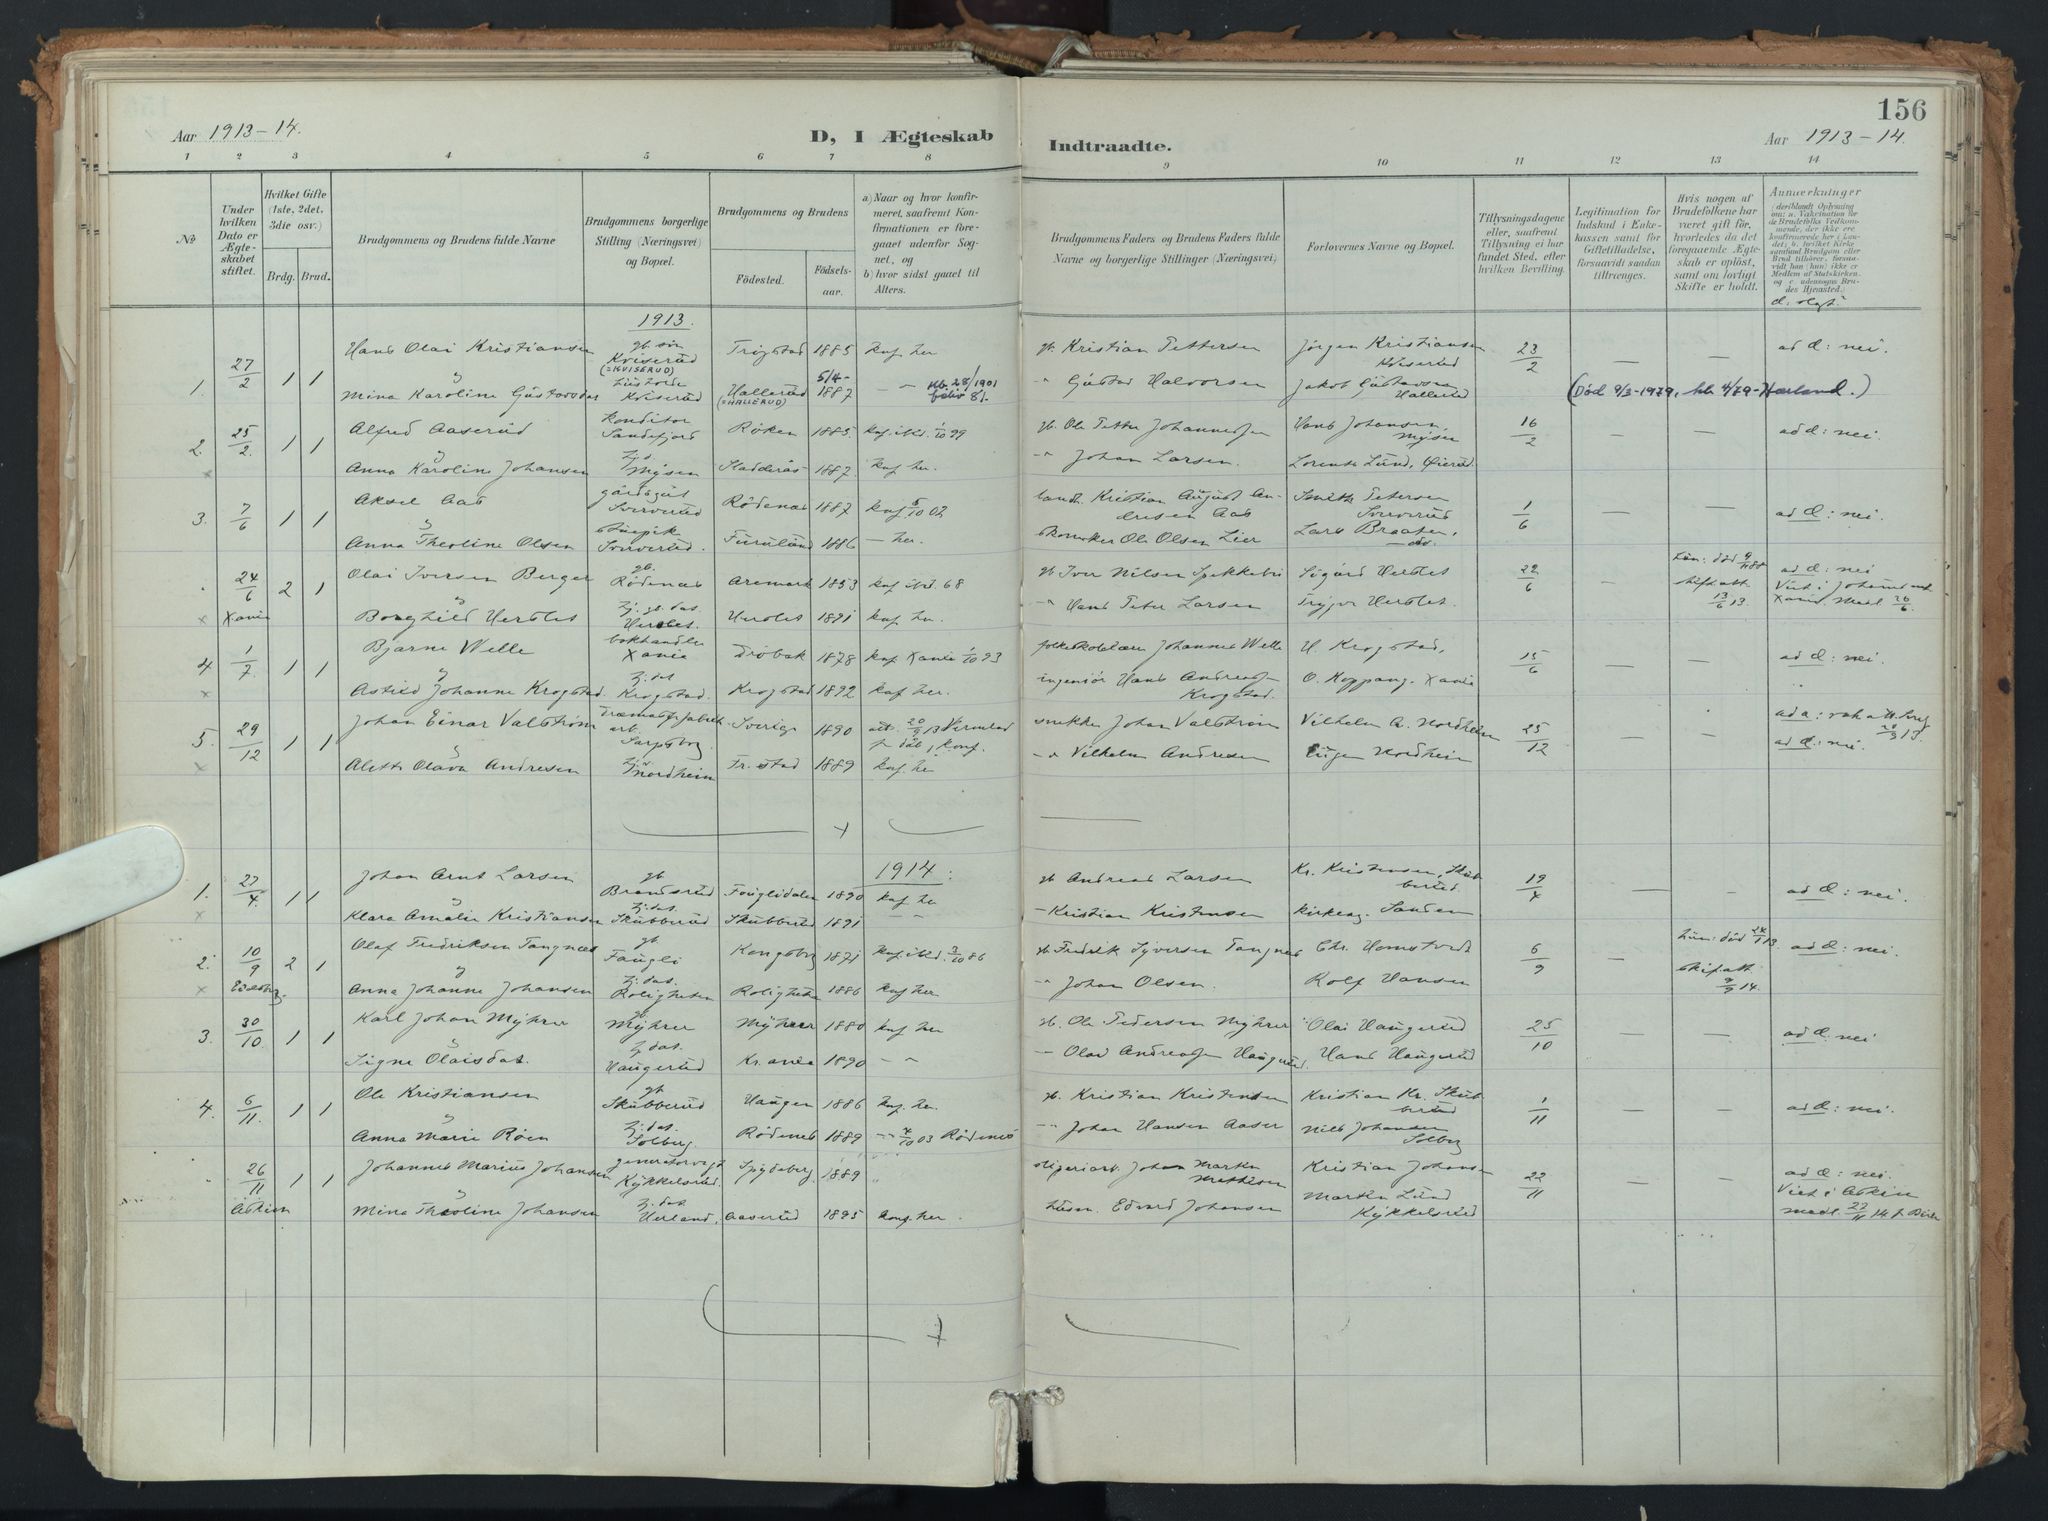 156
Aar 1913-14.
D, I Ægteskab
Indtraadte.
Aar 1913-14.
1 2 3 4 5 6 7 8
9 10 11 12 13 14
№
Under hvilken Dato er Ægteskabet stiftet.
Hvilket Gifte (1ste, 2det, 3die osv.)
Brdg. Brud.
Brudgommens og Brudens fulde Navne
Brudgommens borgerlige Stilling (Næringsvei) og Bopæl.
Brudgommens og Brudens
Fødested.
Fødselsaar.
a) Naar og hvor konfirmeret, saafremt Konfirmationen er foregaaet udenfor Sognet, og
b) hvor sidst gaaet til Alters.
Brudgommens Faders og Brudens Faders fulde Navne og borgerlige Stillinger (Næringsvei)
Forlovernes Navne og Bopæl.
Tillysningsdagene eller, saafremt Tillysning ei har fundet Sted, efter hvilken Bevilling.
Legitimation for Indskud i Enkekassen samt for Giftetilladelse, forsaavidt saadan tiltrænges.
Hvis nogen af Brudefolkene har været gift før, hvorledes da det foregaaende Ægteskab er opløst, samt om lovligt Skifte er holdt.
Anmerkninger
1913.
Hans Olai Kristiansen gb. søn Kviserud (=KVISERUD) Trøgstad 1885 knf. her
gb. Kristian Pettersen Jørgen Kristiansen Kviserud 23/2 — — ad d: nei.
1. 27/2 1 1
Mina Karoline Gustavsdat Kviserud Hallerud (=HALLERUD) 5/4- 1887 — " kb. 28/1901
" Gustav Halvorsen Jakob Gustavsen Hallerud (Død 9/3-1979, kb 4/79-Hærland.)
2. 25/2. 1 1 Alfred Aaserud konditor Sandefjord Røken 1885. knf. ibid. 1/10 99
gb. Ole Petter Johannessen Hans Johansen, Mysen 16/2 — — ad d: nei.
Anna Karoline Johansen Mysen 1887. knf. her.
" Johan Larsen. Lorents Lund,
3. 7/6 1 1 Aksel Aas gårdsgut Sververud Rødenes 1887 knf 5/10 02
landh. Kristian August Andresen Aas Smith Petersen Sververud 1/6 — — ad d: nei.
Anna Theoline Olsen Sververud. Furulund 1886 — her.
Ole Olsen Lier Lars Braaten,
24/6 2 1 Olai Iversen Berger gb. Rødenes Aremark 1853 knf. ibid 68
gb Iver Nilsen Sigurd Herstet 22/6 — død 9/11 88 ad d: nei
X Xania Borghild Herstet Herstet. Herstet 1891 knf. her.
" Hans Peter Larsen Trygve Herstet. 13/6 13. Xania. 26/6
4 1/7. 1 1 Bjarne Welle bokhandler Xania Drøbak 1878 knf Xania 1/10 93
Johannes Welle H. Krogstad, 15/6 — — ad d: nei.
X Astrid Johanne Krogstad. Krogstad. Krogstad 1892 knf. her.
ingeniør Hans Andreas Krogstad. O. Koppang. Xania
5. 29/12 1 1 Johan Einar Valstrøm Sarpsborg Sverige 1890 att. 20/9 13 Vermland f. dåb, konf.
snekker Johan Valstrøm Vilhelm A. Nordheim 25/12 — — ad d: nei.
Alette Olava Andresen Nordheim Fr.stad 1889 knf. her
" Vilhelm Andresen Eugen Nordheim
1914:
1. 27/4. 1 1 Johan Arnt Larsen gb Brandsrud 1890 knf her
gb Andreas Larsen Kr. Kristensen, Skubberud. 19/4 — — ad d: nei.
X Klara Amalie Kristiansen Skubberud Skubberud 1891 — "
— Kristian Kristensen Kirkesg. Sanden
2. 10/9 2 1 Olaf Fredriksen Tangnes gb Faugli Kongsberg 1871 knf. ibid. 3/10 86
gb Fredrik Syversen Tangnes Chr. Homstvedt 6/9 — død 24/1 13. ad d: nei.
X Eidsberg. Anna Johanne Johansen Roligheten Roligheten 1886 knf her
" Johan Olsen. Rolf Hansen skif. att. 9/9 14.
3. 30/10. 1 1 Karl Johan Myhrer gb Myhrer Myhrer 1880 knf her
gb. Ole Pedersen Myhrer Olai Haugerud 25/10 — — ad d: nei
Signe Olaisdat. Haugerud Kr.ania 1890 — "
— Olai Andreassen Haugerud, Hans Haugerud
4. 6/11. 1 1 Ole Kristiansen gb Skubberud Haugen 1886 knf. her.
gb. Kristian Kristensen Kristian Kr. Skubberud 1/11 — — ad d: nei.
Anna Marie Røen Solberg Rødenes 1889 — " 4/10 03 Rødenes
" Johan Hansen Aaser Nils Johansen Solberg
26/11 1 1 Johannes Marius Johansen Kykkelsrud. Spydeberg. 1889 "
Johan Martin Mathisen Kristian Johansen 22/11 — — ad d: nei.
Askim Mina Theoline Johansen Herland, Aaserud 1895 konf. her.
husm. Edvard Johansen Martin Lund Kykkelsrud Viet i Askim medl. 27/11 14